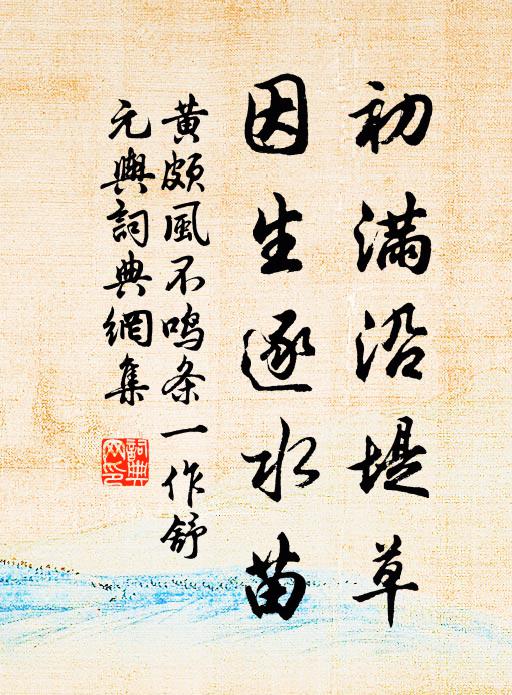 初满沿堤草
因生逐水苗
黄颇风不鸣条一作舒
元舆词典网集
词典
网印